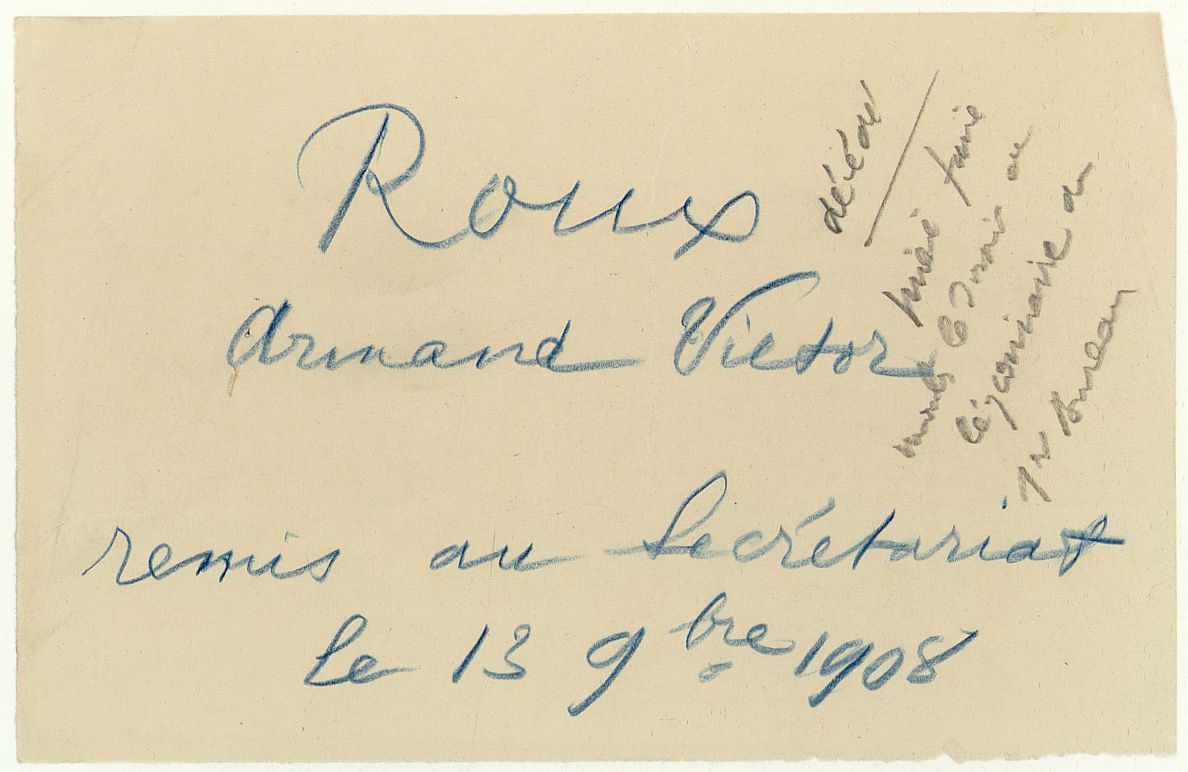 Roux
Armand Victor
remis au Secrétariat
le 13 9bre 1908
décédé
faire
le dossier au
légionnaire du
1er Bureau